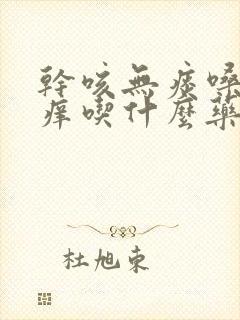 幹咳無痰嗓
痒喫什麼藥
杜旭東